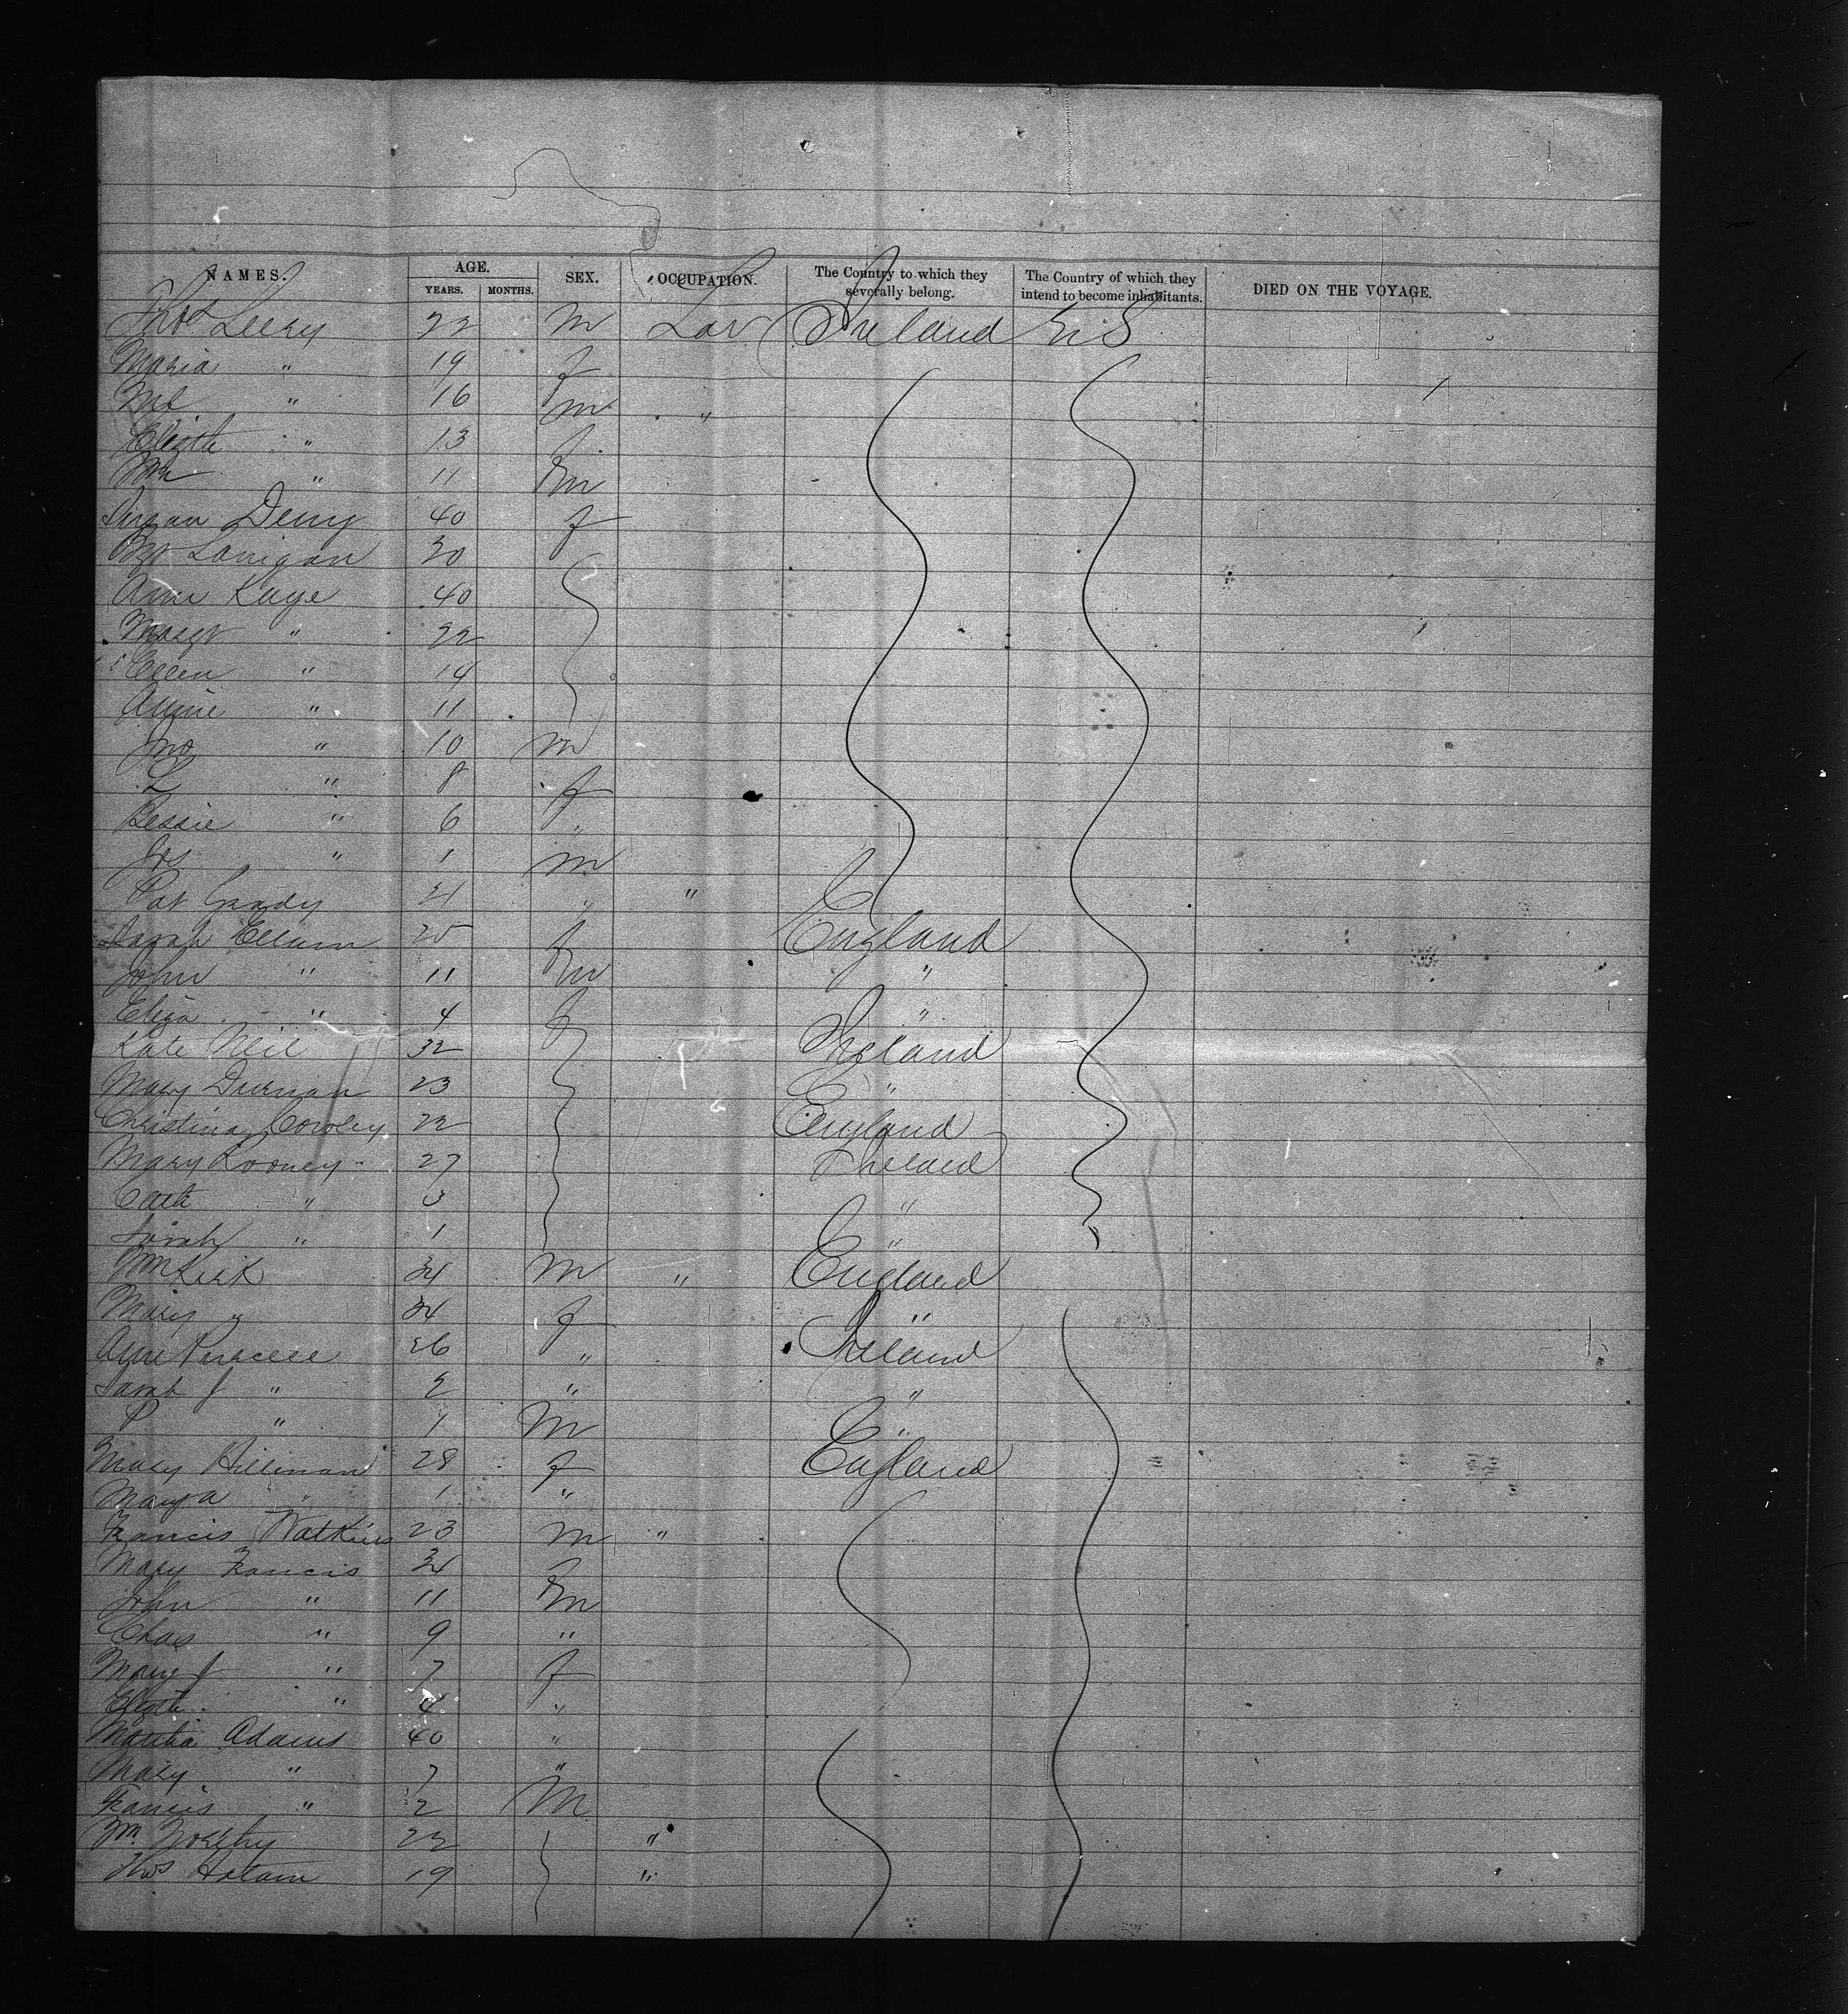 NAMES. AGE. YEARS. MONTHS. SEX. OCCUPATION. The Country to which they severally belong. The Country of which they intend to become inhabitants. DIED ON THE VOYAGE.
Thos Leery 22 m Lab Ireland U.S
Maria " 19 f
Ml " 16 m "
Elizth " 13 f
Wm " 11 m
Susan Deny 40 f
Lanigan 30
Ann Kaye 40
Margt " 22
Ellen " 14
Annie " 11
Jno " 10 m
" 8 f
Bessie " 6 "
Jos " 1 m
Pat Grady 21 " "
Sarah Ellum 25 f England
John " 11 m "
Eliza " 4 f "
Kate Neil 32 Ireland
Mary Durnan 23 "
Christina Cowley 22 England
Mary Rooney 27 Ireland
Cath " 3 "
Sarah " 1 "
Wm Kirk 34 m " England
Mary " 34 f "
Ann Purcell 26 " Ireland
Sarah J " 2 " "
P " 1 M "
Mary Hillman 28 f England
" 1 "
Francis Watkins 23 m "
Mary Francis 34 f
John " 11 m
Chas " 9 "
Mary J " 7 f
Elizth " 4 "
Martha Adams 40 "
Mary " 7 "
Francis " 2 M
Wm 22 "
Thos 19 "